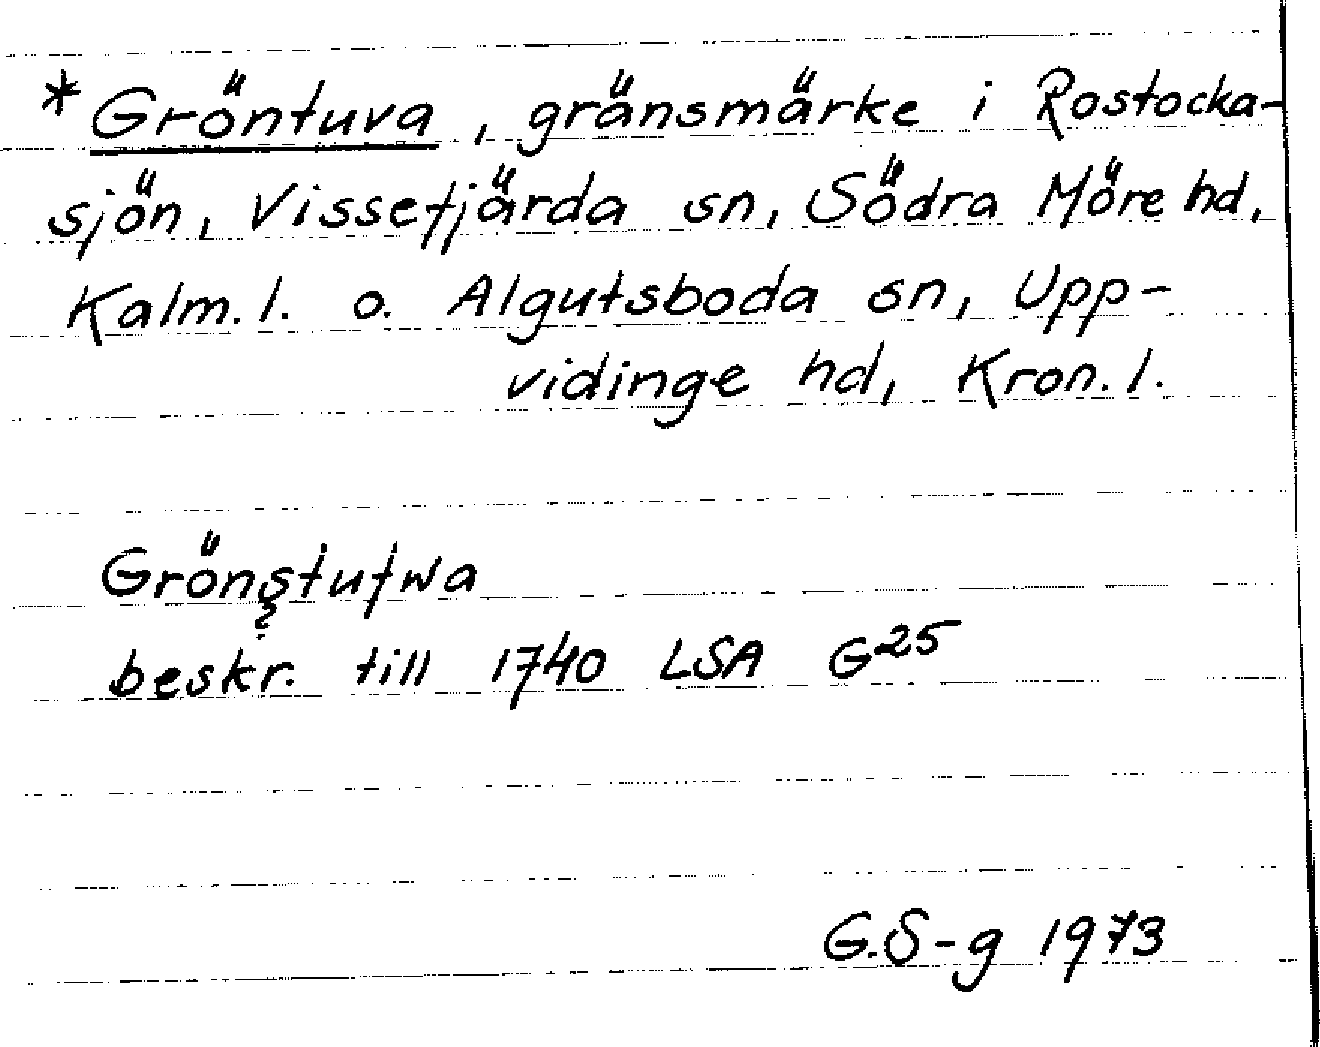 *Gröntuva, gränsmärke i Rostocka-
sjön, Vissefjärda sn, Södra Möre hd,
Kalm. l. o. Algutsboda sn, Upp-
vidinge hd, Kron. l.
Grönstufwa
?
beskr. till 1740 LSA G25
G.S-g 1973